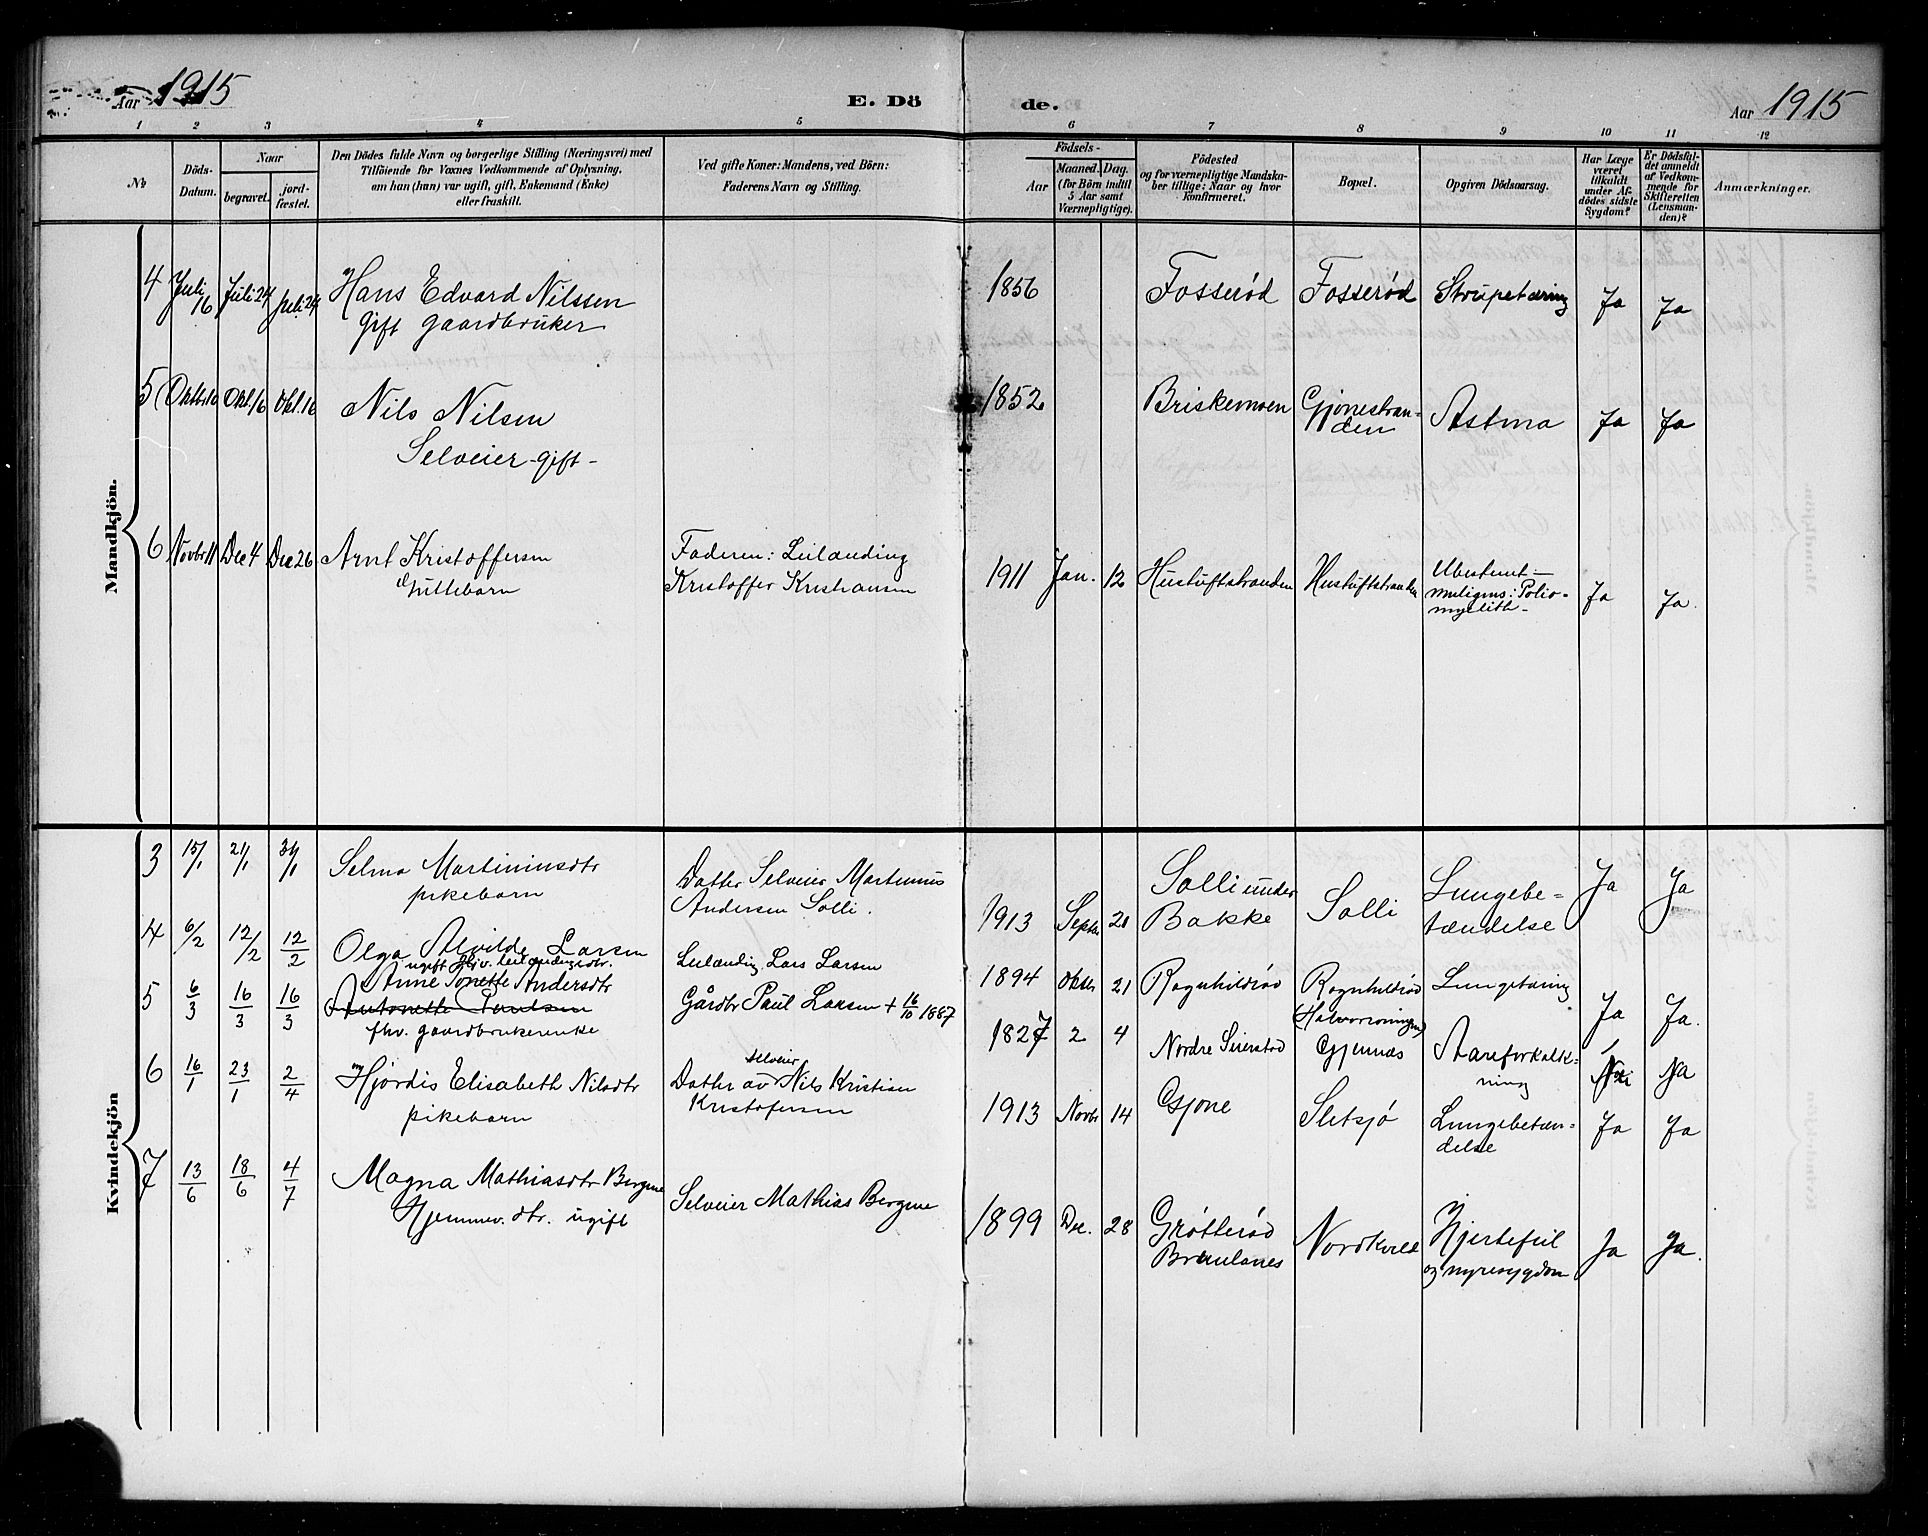 Aar 1915
E. Dö
de.
Aar 1915
1 2 3 4 5 6 7 8 9 10 11 12
№
Döds-
Datum.
Naar
begravet.
jord-
fæstet.
Den Dödes fulde Navn og borgerlige Stilling (Næringsvei) med
Tilföiende for Voxnes Vedkommende af Oplysning,
om han (hun) var ugift, gift, Enkemand (Enke)
eller fraskilt.
Ved gifte Koner: Mandens, ved Börn:
Faderens Navn og Stilling.
Födsels-
Aar
Maaned. Dag.
(for Börn indtil
5 Aar samt
Værnepligtige).
Födested
og for værnepligtige Mandska-
ber tillige: Naar og hvor
konfirmeret.
Bopæl.
Opgiven Dödsaarsag.
Har Læge
været
tilkaldt
under Af-
dödes sidste
Sygdom?
Er Dödsfal-
det anmeldt
af Vedkom-
mende for
Skifteretten
(Lensman-
den)?
Anmærkninger.
Mandkjön.
4 Juli 16 Juli 24 Juli 24 Hans Edvard Nilssen
gift gaardbruker
1856 Fosserød Fosserød Strupetæring Ja Ja
5 Oktbr 10 Okt. 16 Okt. 16 Nils Nilsen
Selveier - gift -
1852 Briskemoen Gjonestran-
den
Astma Ja Ja
6 Novbr 11 Dec 4 Dec 26 Arnt Kristoffersen
Guttebarn
Faderen: Leilænding
Kristoffer Kristiansen
1911 Jan. 12 Hustuftstranden Hustuftstranden
Ubestemt -
muligens: Polio-
myelith -
Ja Ja.
Kvindekjön
3 15/1 21/1 31/1 Selma Martiniusdtr
pikebarn
Datter Selveier Martinius
Andersen Solli.
1913 Septbr 20 Solli under
Bakke
Solli
Lungebe-
tændelse
Ja Ja
4 6/2 12/2 12/2 Olga Alvilde Larsen
ugift Hjv. Leilændingsdtr.
Leilænding Lars Larsen
1894 Oktbr 21 Ragnhildrød Ragnhildrød
(Halvorsrønningen)
Lungetæring Ja Ja.
5 6/3 16/3 16/3 Anne Tonette Andersdtr
Antonette Paulsen
fhv. gaardbrukerenke
Gårdbr Paul Larsen + 16/10 1887
1827 2 4 Nordre Seierstad Gjennæs Aareforkalk-
ning
Nei Ja
6 16/1 23/1 2/4 Hjördis Elisabeth Nilsdtr
pikebarn
Datter av selveier Nils Kristian
Kristofersen
1913 Novbr 14 Gjone Sletsjø Lungebetæn-
delse
Ja Ja
7 13/6 18/6 4/7 Magna Mathiasdtr Bergene
Hjemmev. dtr. ugift
Selveier Mathias Bergene
1899 Dec. 28 Grøtterød
Brunlanes
Nordkvell
Hjertefeil
og nyresygdom
Ja Ja.